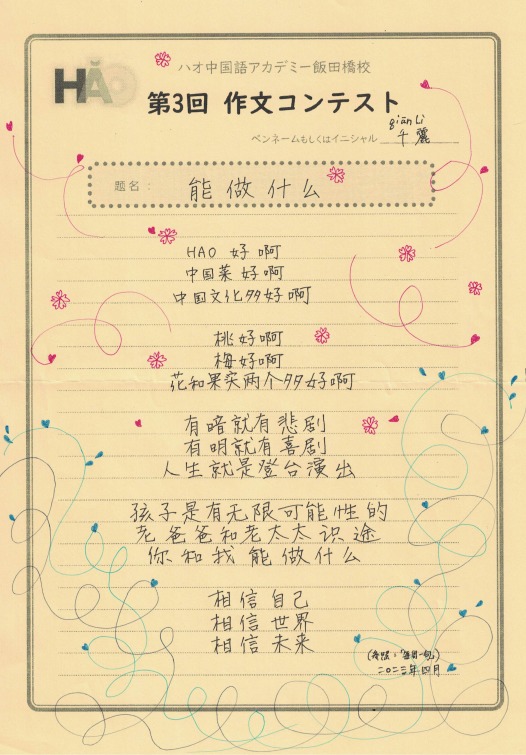 HǍO
ハオ中国語アカデミー飯田橋校
第3回 作文コンテスト
qiān Lì
ペンネームもしくはイニシャル 千麗
题名： 能做什么
HAO 好啊
中国菜好啊
中国文化多好啊
桃好啊
梅好啊
花和果实两个多好啊
有暗就有悲剧
有明就有喜剧
人生就是登台演出
孩子是有无限可能性的
老爸爸和老太太识途
你和我能做什么
相信自己
相信世界
相信未来
二〇二三年四月